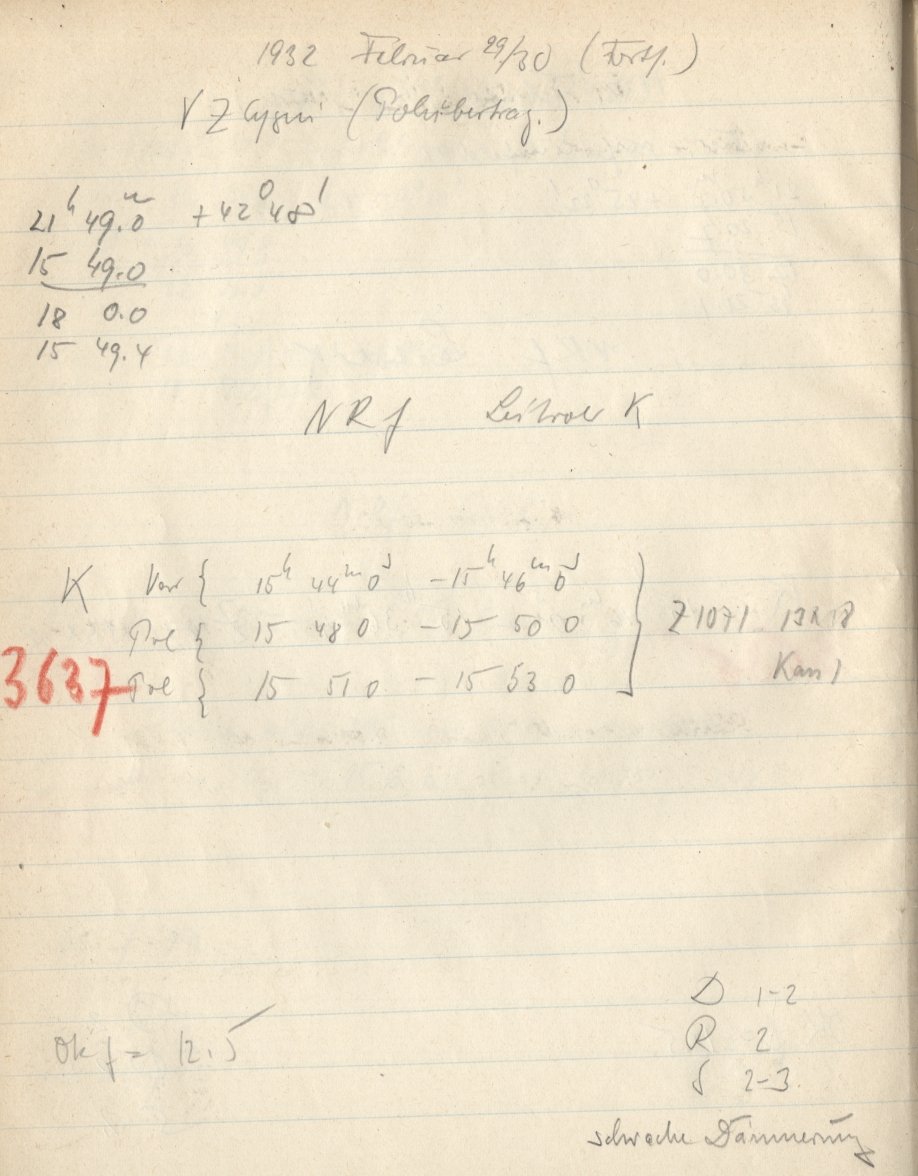 1932 Februar 29/30 (Forts.)
VZ Cygni (Polübertrag.)
21h 49.0m +42° 48'
15 49.0
18 0.0
15 49.4
NRf Leitrohr K
K Var { 15h 44m 0s - 15h 46m 0s
Pol { 15 48 0 - 15 50 0 } Z 1071 13x18
3637 Pol { 15 51 0 - 15 53 0 Kas 1
Ok f = 12.5
D 1-2
R 2
S 2-3
schwache Dämmerung